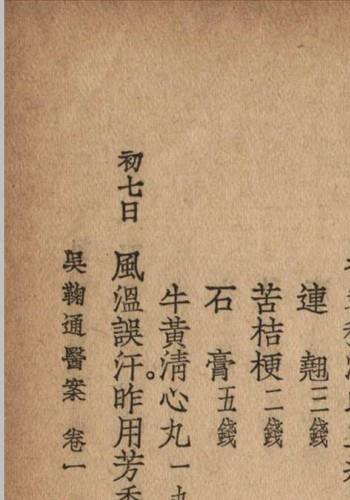 連翹三錢
苦桔梗二錢
石膏五錢
牛黃清心丸一丸
初七日 風溫誤汗。昨用芳香
吳鞠通醫案 卷一